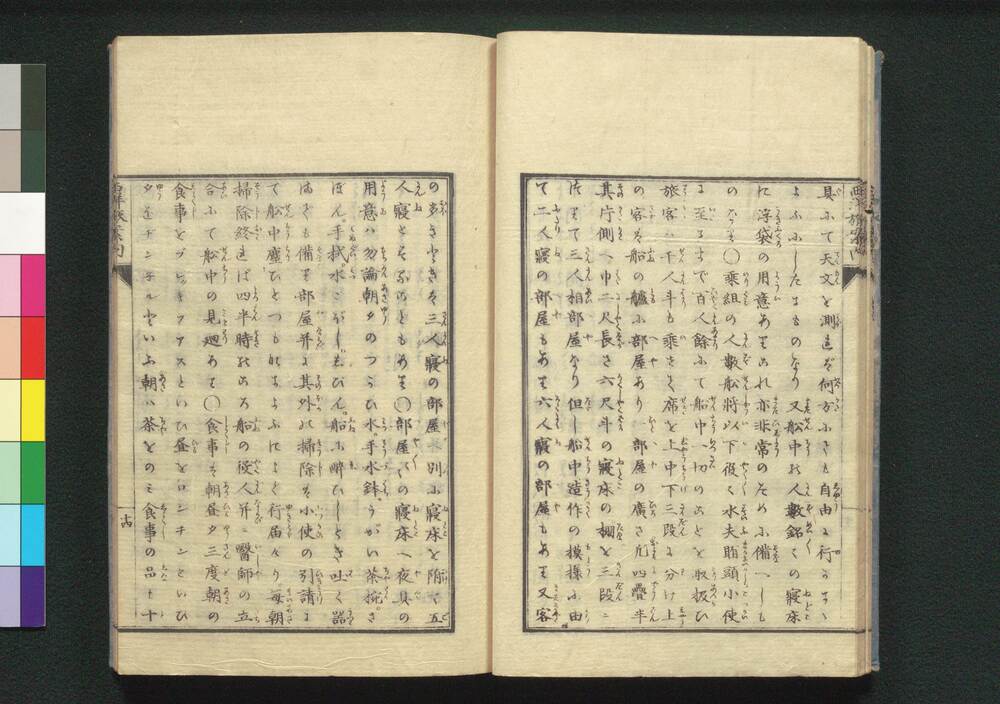 具ふて天文を測れバ何方にても自由に行かるゝ
よふふしたるものなり又船中の人數銘々の寢床
に浮袋の用意ありこれ亦非常のために備へしも
のなり〇乘組の人數船將以下役々水夫賄頭小使
に至るまで百人餘ふて船中一切のことを取扱ひ
旅客ハ千人斗も乘るべく席を上中下三段に分け上
の客ハ船の艫に部屋あり一部屋の廣さ凡四疊半
其片側へ巾二尺長さ六尺斗の寢床の棚を三段ニ
作りて三人相部屋なり但し船中造作の模樣ふ由
て二人寢の部屋もあり六人寢の部屋もあり又客
の多きときハ三人寢の部屋へ別ふ寢床を附て五
人寢となすこともあり〇部屋ハ寢床へ夜具の
用意ハ勿論朝夕のつかひ水手水鉢うがい茶椀さ
ぼん手拭水こぼしせうびん船ふ醉ひしとき吐く器
までも備へ部屋并に其外の掃除ハ小使の引請に
て船中塵ひとつもなきよふによく行届けり毎朝
掃除終れば四半時のころ船の役人并ニ醫師の立
合ふて船中の見廻あり〇食事ハ朝晝夕三度朝の
食事をブレッキフアスといひ晝をロンチンといひ
夕をヂンナルといふ朝ハ茶をのミ食事の品も十
西洋旅案内
十四